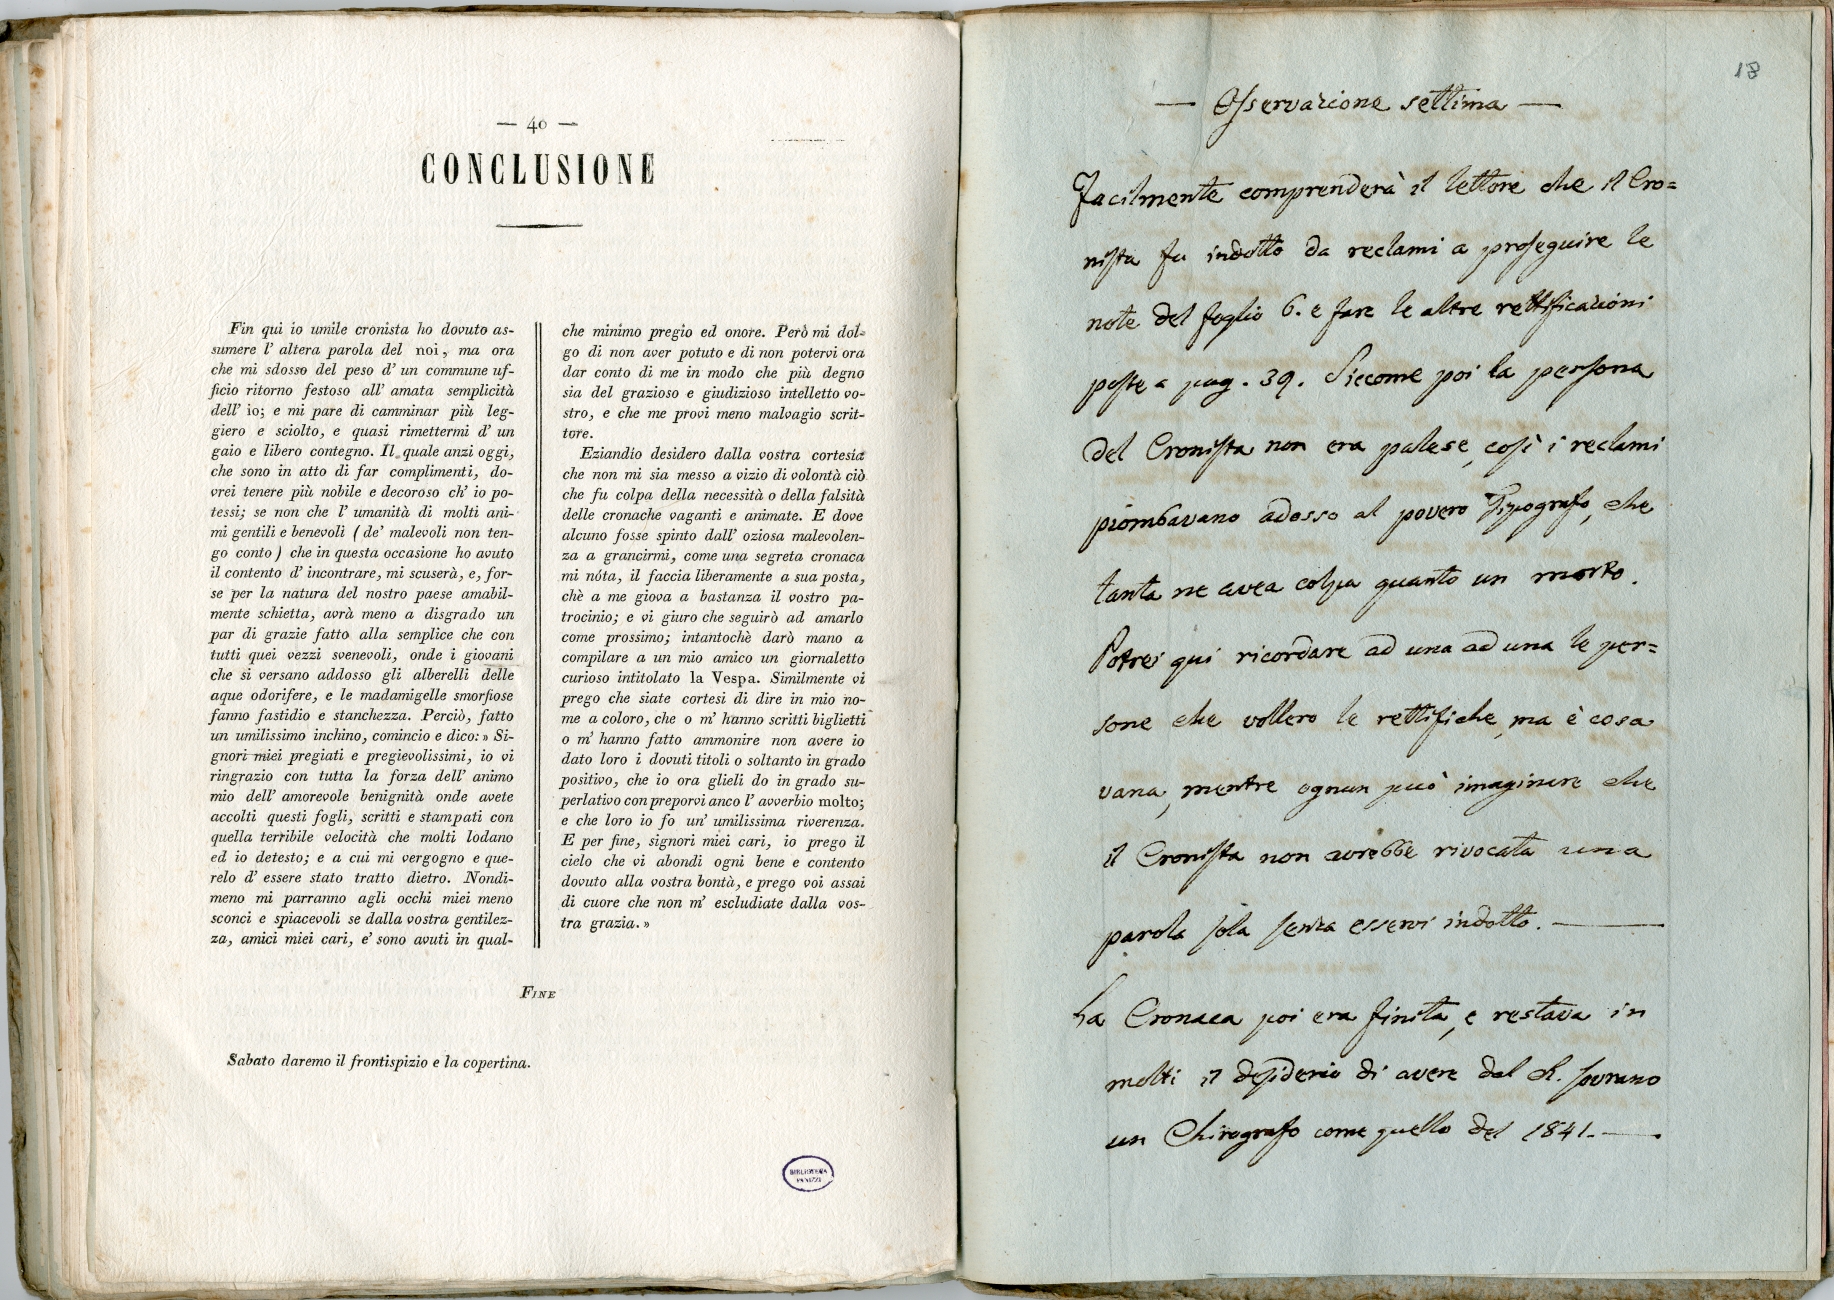 — 40 —
CONCLUSIONE
Fin qui io umile cronista ho dovuto as-
sumere l' altera parola del noi, ma ora
che mi sdosso del peso d' un commune uf-
ficio ritorno festoso all' amata semplicità
dell' io; e mi pare di camminar più leg-
giero e sciolto, e quasi rimettermi d' un
gaio e libero contegno. Il quale anzi oggi,
che sono in atto di far complimenti, do-
vrei tenere più nobile e decoroso ch' io po-
tessi; se non che l' umanità di molti ani-
mi gentili e benevoli ( de' malevoli non ten-
go conto ) che in questa occasione ho avuto
il contento d' incontrare, mi scuserà, e, for-
se per la natura del nostro paese amabil-
mente schietta, avrà meno a disgrado un
par di grazie fatto alla semplice che con
tutti quei vezzi svenevoli, onde i giovani
che si versano addosso gli alberelli delle
aque odorifere, e le madamigelle smorfiose
fanno fastidio e stanchezza. Perciò, fatto
un umilissimo inchino, comincio e dico: » Si-
gnori miei pregiati e pregievolissimi, io vi
ringrazio con tutta la forza dell' animo
mio dell' amorevole benignità onde avete
accolti questi fogli, scritti e stampati con
quella terribile velocità che molti lodano
ed io detesto; e a cui mi vergogno e que-
relo d' essere stato tratto dietro. Nondi-
meno mi parranno agli occhi miei meno
sconci e spiacevoli se dalla vostra gentilez-
za, amici miei cari, e' sono avuti in qual-
che minimo pregio ed onore. Però mi dol-
go di non aver potuto e di non potervi ora
dar conto di me in modo che più degno
sia del grazioso e giudizioso intelletto vo-
stro, e che me provi meno malvagio scrit-
tore.
Eziandio desidero dalla vostra cortesia
che non mi sia messo a vizio di volontà ciò
che fu colpa della necessità o della falsità
delle cronache vaganti e animate. E dove
alcuno fosse spinto dall' oziosa malevolen-
za a grancirmi, come una segreta cronaca
mi nóta, il faccia liberamente a sua posta,
chè a me giova a bastanza il vostro pa-
trocinio; e vi giuro che seguirò ad amarlo
come prossimo; intantochè darò mano a
compilare a un mio amico un giornaletto
curioso intitolato la Vespa. Similmente vi
prego che siate cortesi di dire in mio no-
me a coloro, che o m' hanno scritti biglietti
o m' hanno fatto ammonire non avere io
dato loro i dovuti titoli o soltanto in grado
positivo, che io ora glieli do in grado su-
perlativo con preporvi anco l' avverbio molto;
e che loro io fo un' umilissima riverenza.
E per fine, signori miei cari, io prego il
cielo che vi abondi ogni bene e contento
dovuto alla vostra bontà, e prego voi assai
di cuore che non m' escludiate dalla vos-
tra grazia. »
FINE
Sabato daremo il frontispizio e la copertina.
BIBLIOTECA
PANIZZI
18
— Osservazione settima —
Facilmente comprenderà il lettore che il Cro=
nista fu indotto da reclami a proseguire le
note del foglio 6. e fare le altre rettificazioni
poste a pag. 39. Siccome poi la persona
del Cronista non era palese, così i reclami
piombavano adosso al povero Tipografo, che
tanta ne avea colpa quanto un morto.
Potrei qui ricordare ad una ad una le per=
sone che vollero le rettifiche, ma è cosa
vana, mentre ognun può imaginare che
il Cronista non avrebbe rivocata una
parola sola senza esservi indotto. —
La Cronaca poi era finita, e restava in
molti il desiderio di avere dal ch. sovrano
un Chirografo come quello del 1841. —